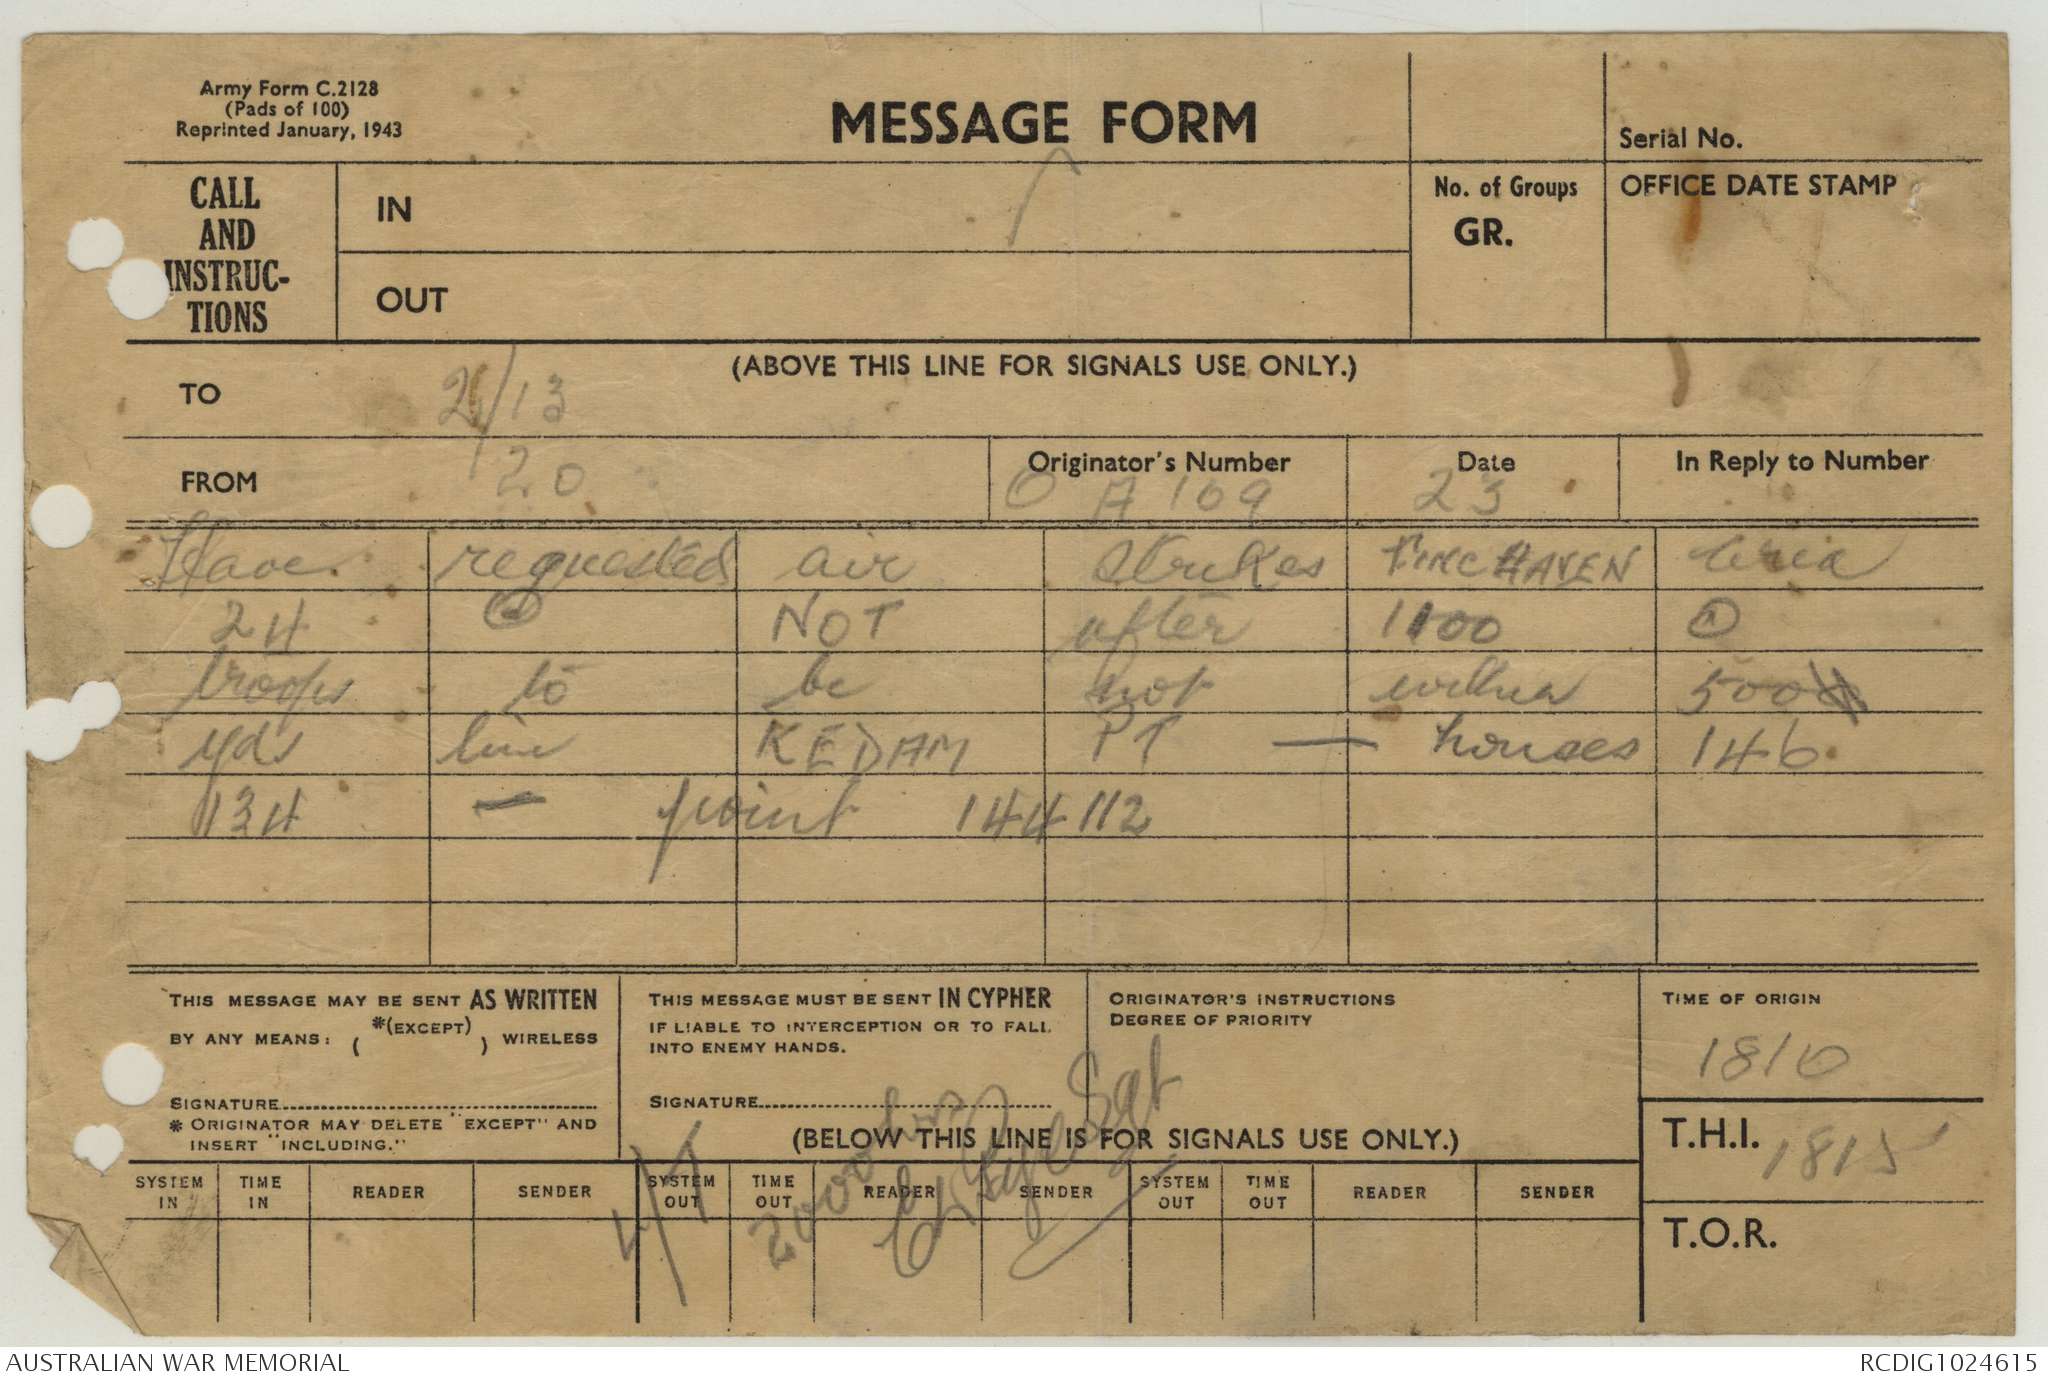 Army Form C.2128
(Pads of 100)
Reprinted January, 1943
MESSAGE FORM
Serial No.
CALL
AND
INSTRUC-
TIONS
IN
OUT
No. of Groups
GR.
OFFICE DATE STAMP
(ABOVE THIS LINE FOR SIGNALS USE ONLY.)
TO 2/13
FROM 20
Originator's Number O A 109
Date 23
In Reply to Number
Have requested air strikes FINCHHAVEN area
24 NOT after 1100
troops to be not within 500
yds line KEDAM PT — houses 146
134 — point 144112
THIS MESSAGE MAY BE SENT AS WRITTEN
BY ANY MEANS: ( *(EXCEPT) ) WIRELESS
SIGNATURE
* ORIGINATOR MAY DELETE "EXCEPT" AND
INSERT "INCLUDING."
THIS MESSAGE MUST BE SENT IN CYPHER
IF LIABLE TO INTERCEPTION OR TO FALL
INTO ENEMY HANDS.
SIGNATURE
ORIGINATOR'S INSTRUCTIONS
DEGREE OF PRIORITY
TIME OF ORIGIN
1810
T.H.I. 1815
T.O.R.
(BELOW THIS LINE IS FOR SIGNALS USE ONLY.)
2000 hrs
Sgt
SYSTEM IN TIME IN READER SENDER SYSTEM OUT TIME OUT READER SENDER SYSTEM OUT TIME OUT READER SENDER
AUSTRALIAN WAR MEMORIAL
RCDIG1024615